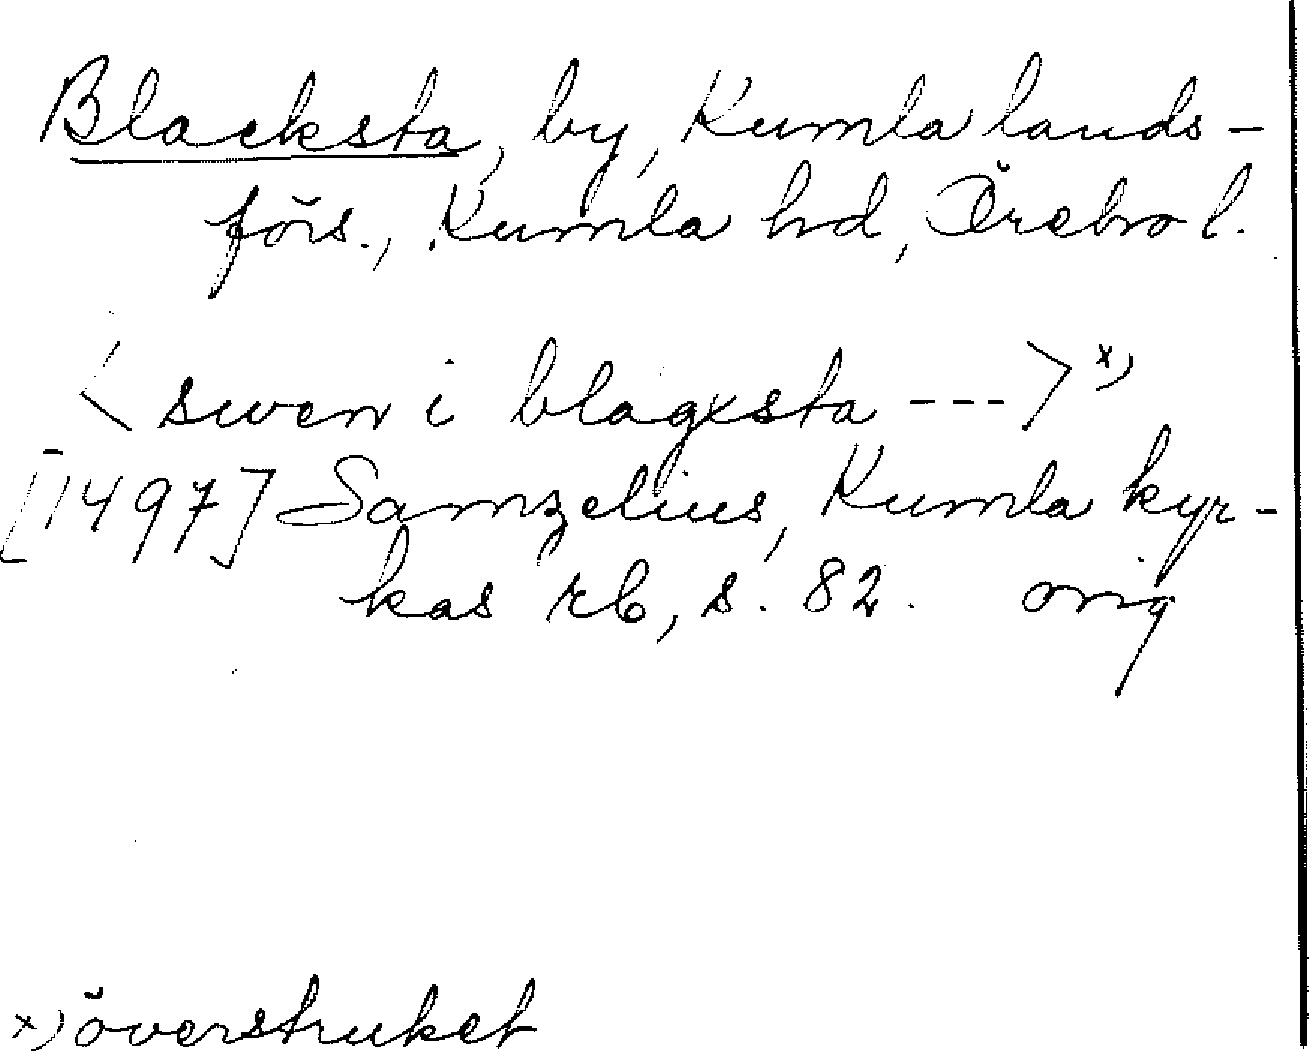 Blacksta, by, Kumla lands-
förs., Kumla hd, Örebro l.
< swen i blagxsta --- > x)
[1497] Samzelius, Kumla kyr-
kas rb, s. 82. orig
x) överstruket